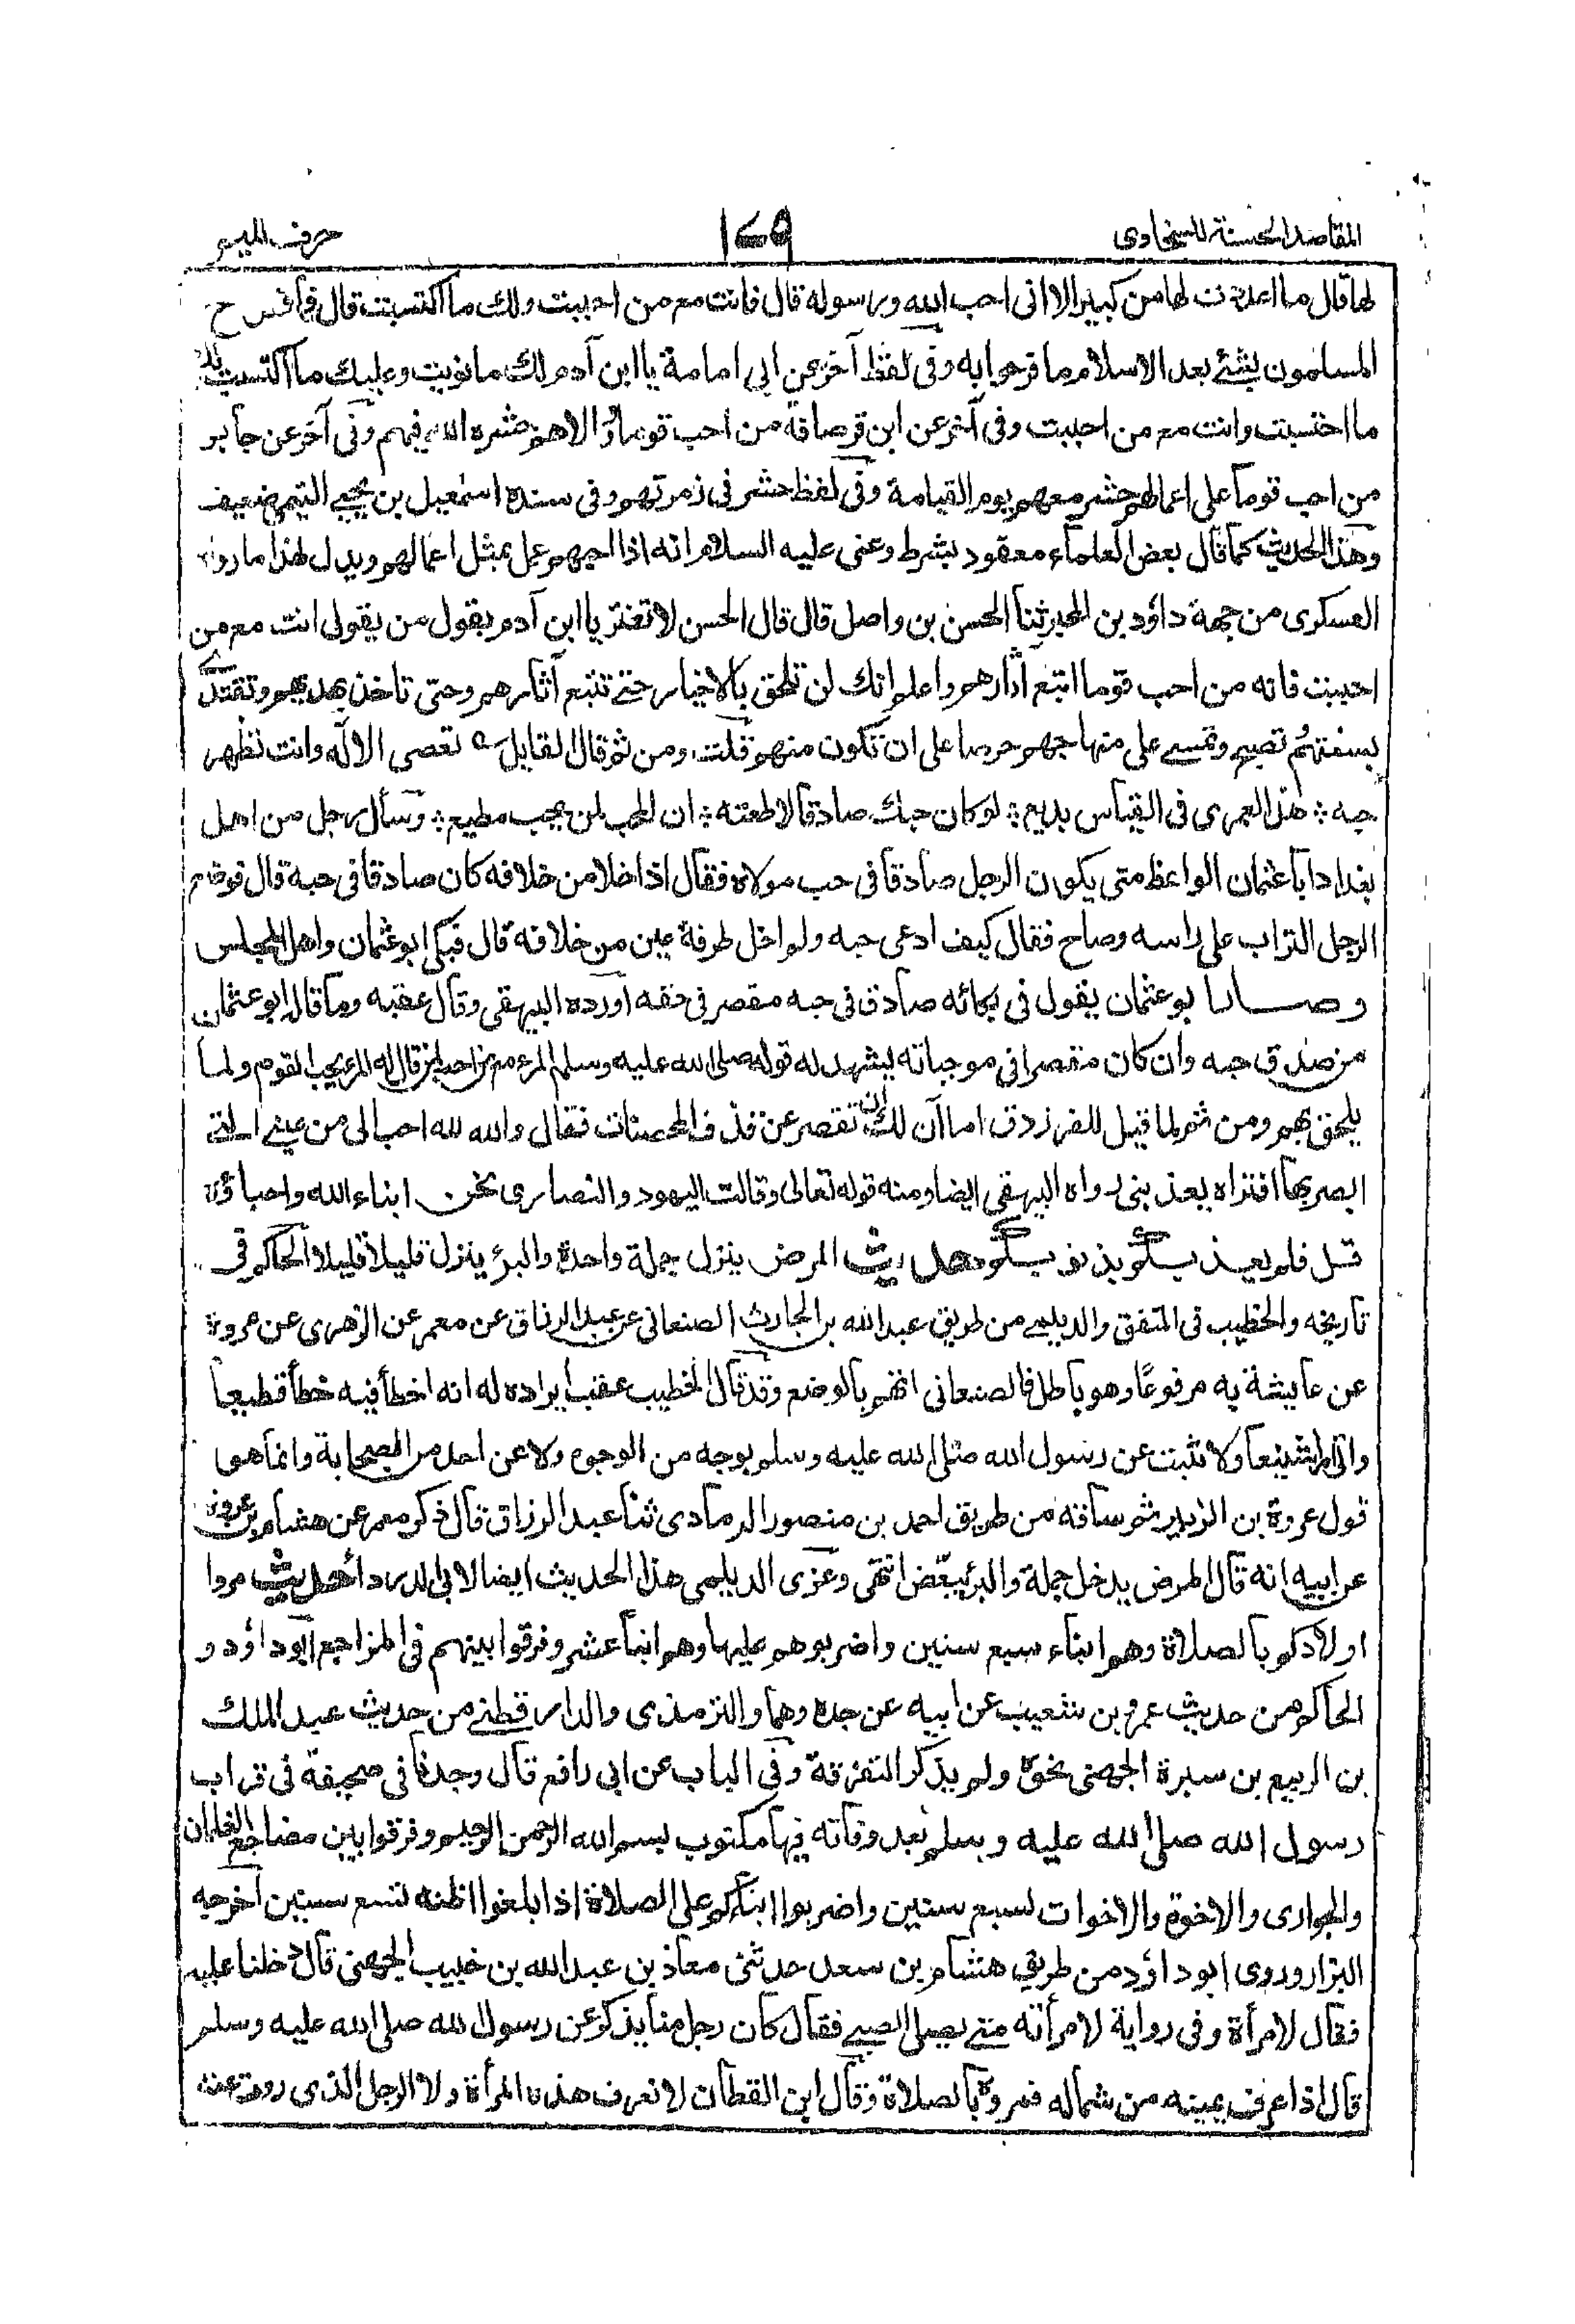 المقاصد الحسنة للسخاوى
١٧٩
حرف الميم
لها قال ما اعددت لها من كبير الا انى احب الله ورسوله قال فانت مع من احببت ولك ما اكتسبت قال فما فرح
المسلمون بشئ بعد الاسلام ما فرحوا به وفى لفظ آخر عن ابى امامة يا ابن آدم لك ما نويت وعليك ما اكتسبت ولك
ما احتسبت وانت مع من احببت وفى آخر عن ابن قرصافة من احب قوما ووالاهم حشره الله فيهم وفى آخر عن جابر
من احب قوما على اعمالهم حشر معهم يوم القيامة وفى لفظ حشر فى زمرتهم وفى سنده اسمعيل بن يحيى التيمى ضعيف
وهذا الحديث كما قال بعض العلماء معقود بشرط وعنى عليه السلام انه اذا احبهم عمل بمثل اعمالهم ويدل لهذا ما رواه
العسكرى من جهة داؤد بن المحبر ثنا الحسن بن واصل قال قال الحسن لا تغتر يا ابن آدم بقول من يقول انت مع من
احببت فانه من احب قوما اتبع آثارهم واعلم انك لن تلحق بالاخيار حتى تتبع آثارهم وحتى تاخذ بهديهم وتقتدى
بسنتهم تصبح وتمسى على منهاجهم حرصا على ان تكون منهم قلت ومن ثم قال القايل ؎ تعصى الاله وانت تظهر
حبه ؞ هذا لعمرى فى القياس بديع ؞ لو كان حبك صادقا لاطعته ؞ ان المحب لمن يحب مطيع ؞ وسأل رجل من اهل
بغداد ابا عثمان الواعظ متى يكون الرجل صادقا فى حب مولاه فقال اذا خلا من خلافه كان صادقا فى حبه قال فوضع
الرجل التراب على راسه وصاح فقال كيف ادعى حبه ولم اخل طرفة عين من خلافه قال فبكى ابو عثمان واهل المجلس
وصار ابو عثمان يقول فى بكائه صادق فى حبه مقصر فى حقه اورده البيهقى وقال عقبه وما قال ابو عثمان
من صدق حبه وان كان مقصرا فى موجباته يشهد له قوله صلى الله عليه وسلم المرء مع من احب لمن قال له المرء يحب القوم ولما
يلحق بهم ومن ثم لما قيل للفرزدق اما آن لك ان تقصر عن قذف المحصنات فقال والله لله احب الى من عينى التى
ابصر بها افتراه يعذبنى رواه البيهقى ايضا ومنه قوله تعالى وقالت اليهود والنصارى نحن ابناء الله واحباؤه
قل فلم يعذبكم بذنوبكم حديث المرض ينزل جملة واحدة والبرء ينزل قليلا قليلا الحاكم فى
تاريخه والخطيب فى المتفق والديلمى من طريق عبد الله بن الحارث الصنعانى عن عبد الرزاق عن معمر عن الزهرى عن عروة
عن عايشة به مرفوعا وهو باطل فالصنعانى اتهم بالوضع وقد قال الخطيب عقب ايراده له انه اخطأ فيه خطأ فظيعا
واتى امرا شنيعا ولا تثبت عن رسول الله صلى الله عليه وسلم بوجه من الوجوه ولا عن احد من الصحابة وانما هو
قول عروة بن الزبير ثم ساقه من طريق احمد بن منصور الرمادى ثنا عبد الرزاق قال ذكر معمر عن هشام بن عروة
عن ابيه انه قال المرض يدخل جملة والبرء يبعض انتهى وعزى الديلمى هذا الحديث ايضا لابى الدرداء حديث مروا
اولادكم بالصلاة وهم ابناء سبع سنين واضربوهم عليها وهم ابناء عشر وفرقوا بينهم فى المزاجع ابو داؤد و
الحاكم من حديث عمرو بن شعيب عن ابيه عن جده وهما والترمذى والدارقطنى من حديث عبد الملك
بن الربيع بن سبرة الجهنى نحوه ولم يذكر التفرقة وفى الباب عن ابى رافع قال وجدنا فى صحيفة فى قراب
رسول الله صلى الله عليه وسلم بعد وفاته فيها مكتوب بسم الله الرحمن الرحيم وفرقوا بين مضاجع الغلمان
والجوارى والاخوة والاخوات لسبع سنين واضربوا ابناءكم على الصلاة اذا بلغوا اظنه لتسع سنين اخرجه
البزار وروى ابو داؤد من طريق هشام بن سعد حدثنى معاذ بن عبد الله بن خبيب الجهنى قال دخلنا عليه
فقال لامرأة وفى رواية لامرأته متى يصلى الصبى فقال كان رجل منا يذكر عن رسول الله صلى الله عليه وسلم
قال اذا عرف يمينه من شماله فمروه بالصلاة وقال ابن القطان لا نعرف هذه المرأة ولا الرجل الذى روت عنه